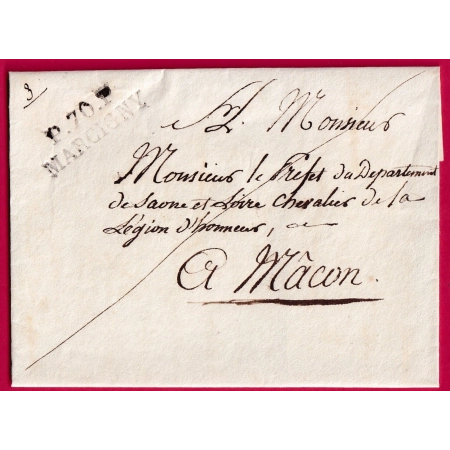 3
P.70.P
MARCIGNY
A Monsieur
Monsieur le Préfet du Departement
de Saone et Loire Chevalier de la
Légion d'honneur, a
A Mâcon.